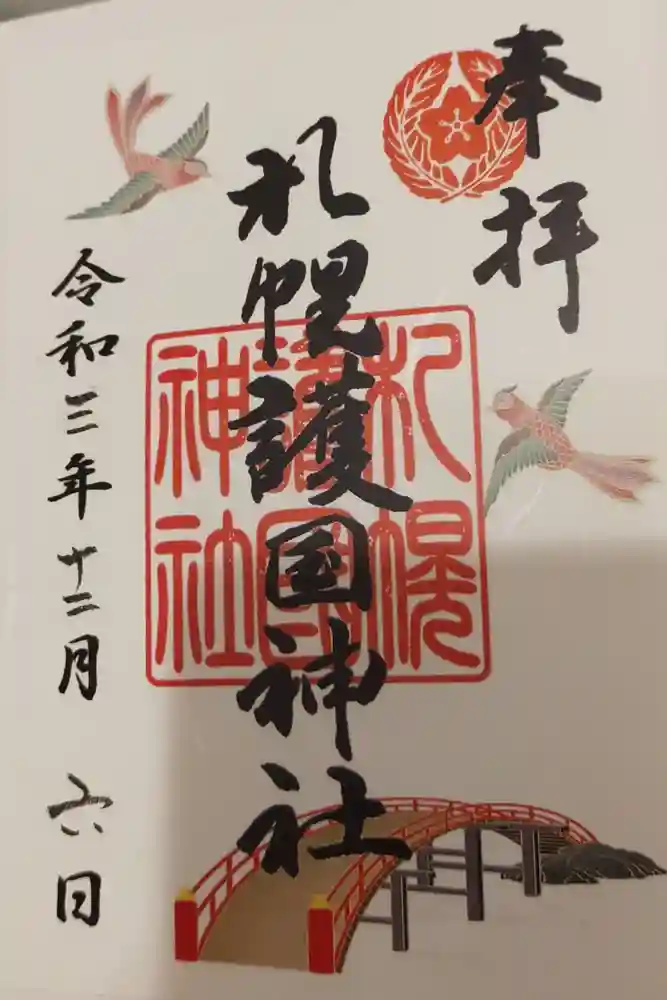 奉拝
札幌護国神社
札幌
護国
神社
令和三年十二月六日